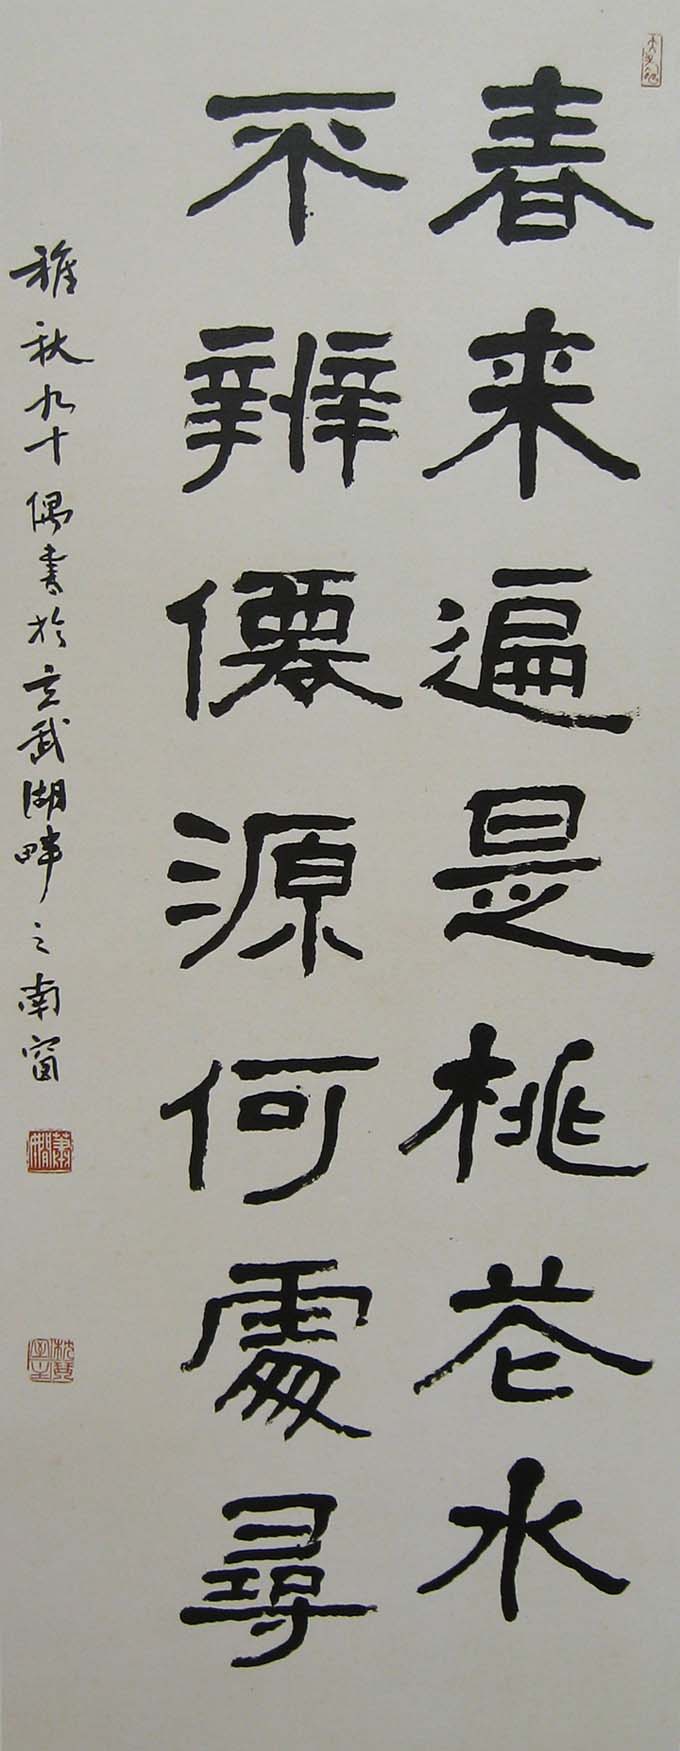 春来遍是桃花水
不辨僊源何處尋
稚秋九十偶書於玄武湖畔之南窗
蕭嫻
枕琴室主